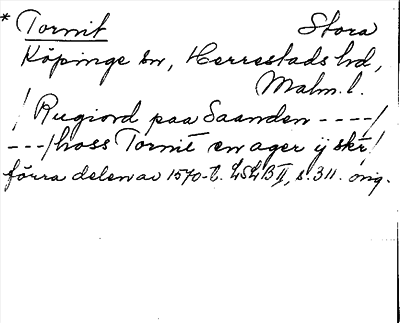 * Tornit Stora
Köpinge sn, Herrestads hd,
Malm. l.
/ Rugiord paa Saanden ----/
---/hoss Tornit en ager ij skr/
förra delen av 1570-t. LSLB II, s. 311. orig.